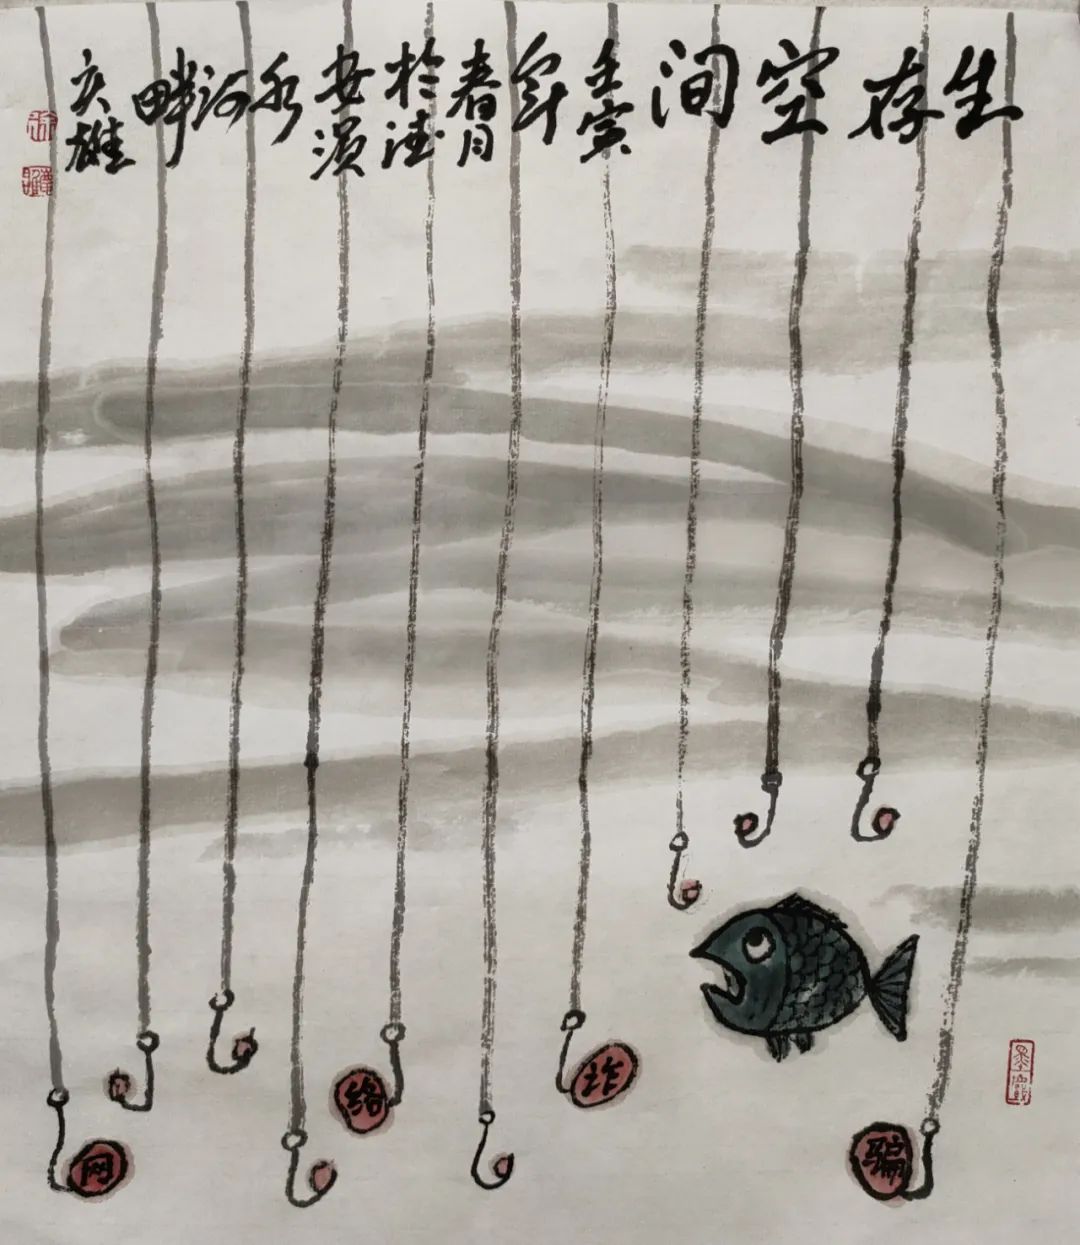 生存空间
壬寅
年
春月
於
河
畔
雄
网
络
诈
骗